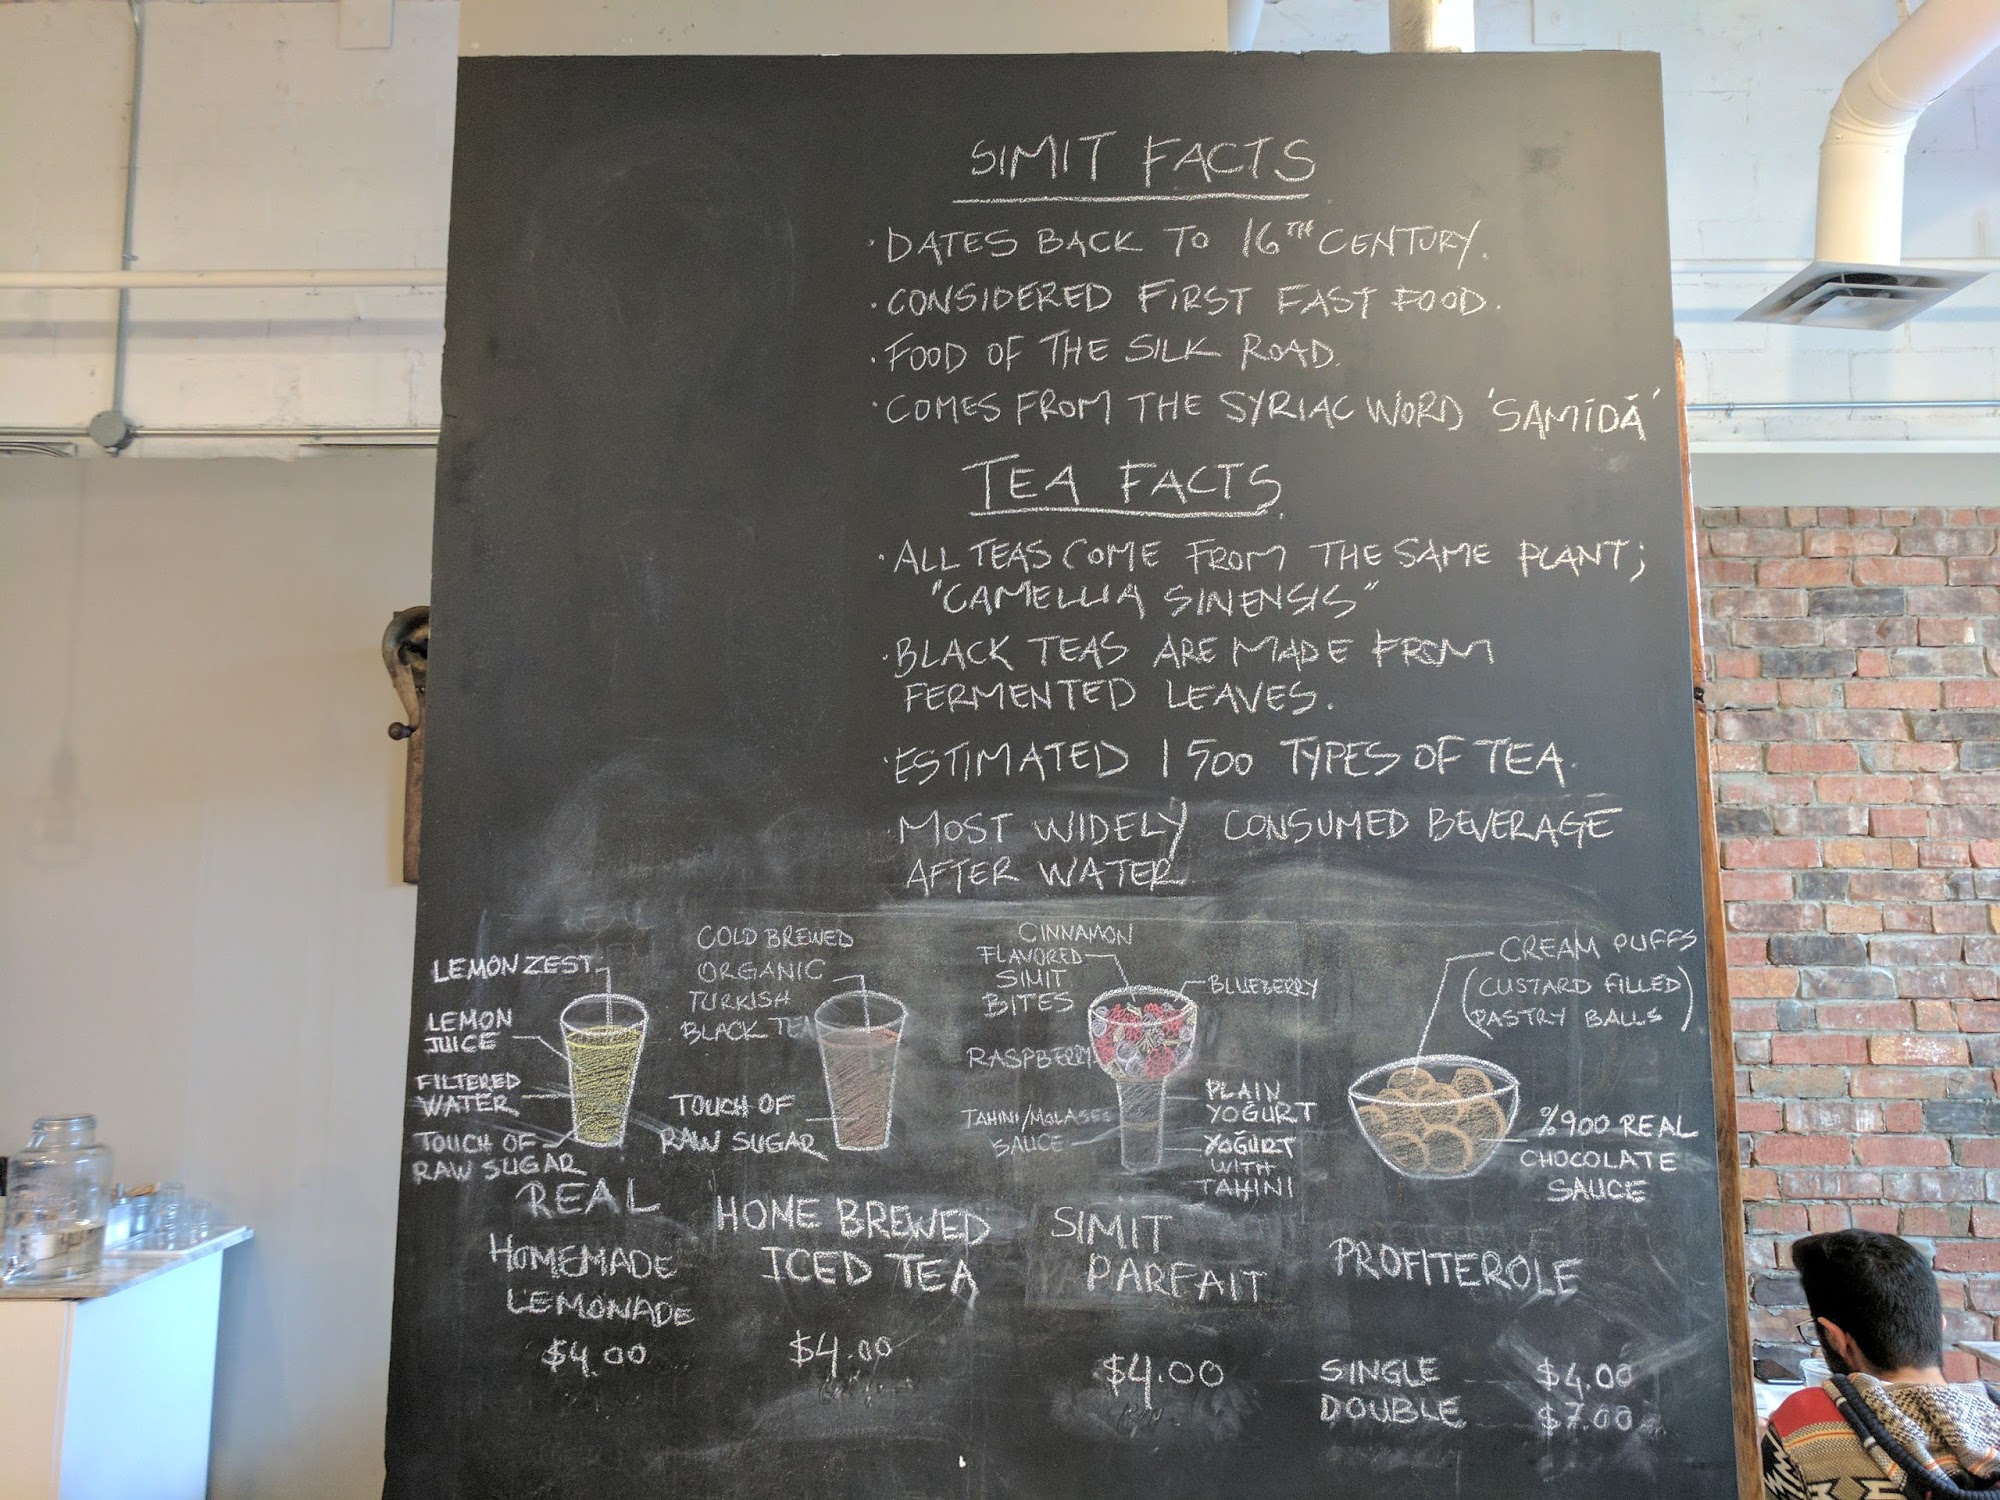 SIMIT FACTS
· DATES BACK TO 16TH CENTURY.
· CONSIDERED FIRST FAST FOOD.
· FOOD OF THE SILK ROAD.
· COMES FROM THE SYRIAC WORD 'SAMĪDĀ'
TEA FACTS
· ALL TEAS COME FROM THE SAME PLANT;
"CAMELLIA SINENSIS"
· BLACK TEAS ARE MADE FROM
FERMENTED LEAVES.
· ESTIMATED 1500 TYPES OF TEA.
· MOST WIDELY CONSUMED BEVERAGE
AFTER WATER.
LEMON ZEST
LEMON
JUICE
FILTERED
WATER
TOUCH OF
RAW SUGAR
REAL
HOMEMADE
LEMONADE
$4.00
COLD BREWED
ORGANIC
TURKISH
BLACK TEA
TOUCH OF
RAW SUGAR
HOME BREWED
ICED TEA
$4.00
CINNAMON
FLAVORED
SIMIT
BITES
BLUEBERRY
RASPBERRY
TAHINI/MOLASES
SAUCE
PLAIN
YOĞURT
YOĞURT
WITH
TAHINI
SIMIT
PARFAIT
$4.00
CREAM PUFFS
(CUSTARD FILLED
PASTRY BALLS)
%900 REAL
CHOCOLATE
SAUCE
PROFITEROLE
SINGLE $4.00
DOUBLE $7.00